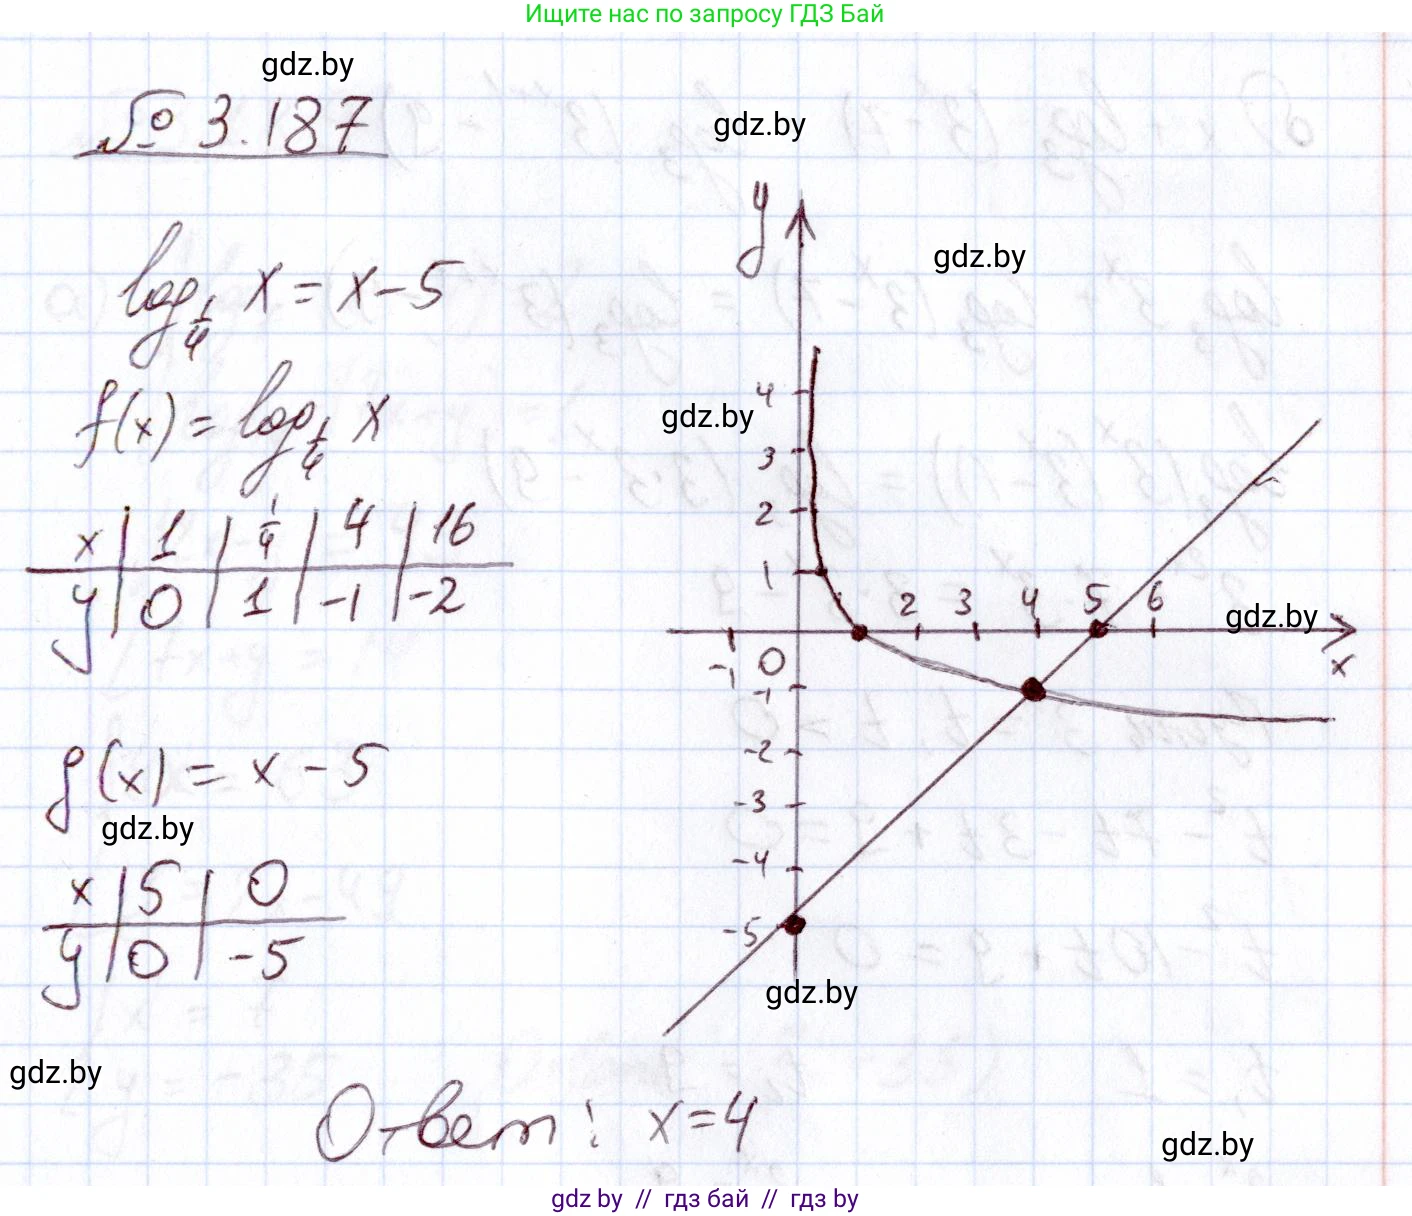 Ищите нас по запросу ГДЗ Бай
gdz.by
№ 3.187
gdz.by
y
gdz.by
log_{1/4} x = x - 5
f(x) = log_{1/4} x
gdz.by
x | 1 | 1/4 | 4 | 16
y | 0 | 1 | -1 | -2
4
3
2
1
2 3 4 5 6
gdz.by
-1 0 x
-1
-2
-3
-4
-5
g(x) = x - 5
gdz.by
x | 5 | 0
y | 0 | -5
gdz.by
gdz.by
Ответ: x = 4
gdz.by
gdz.by // гдз бай // гдз by